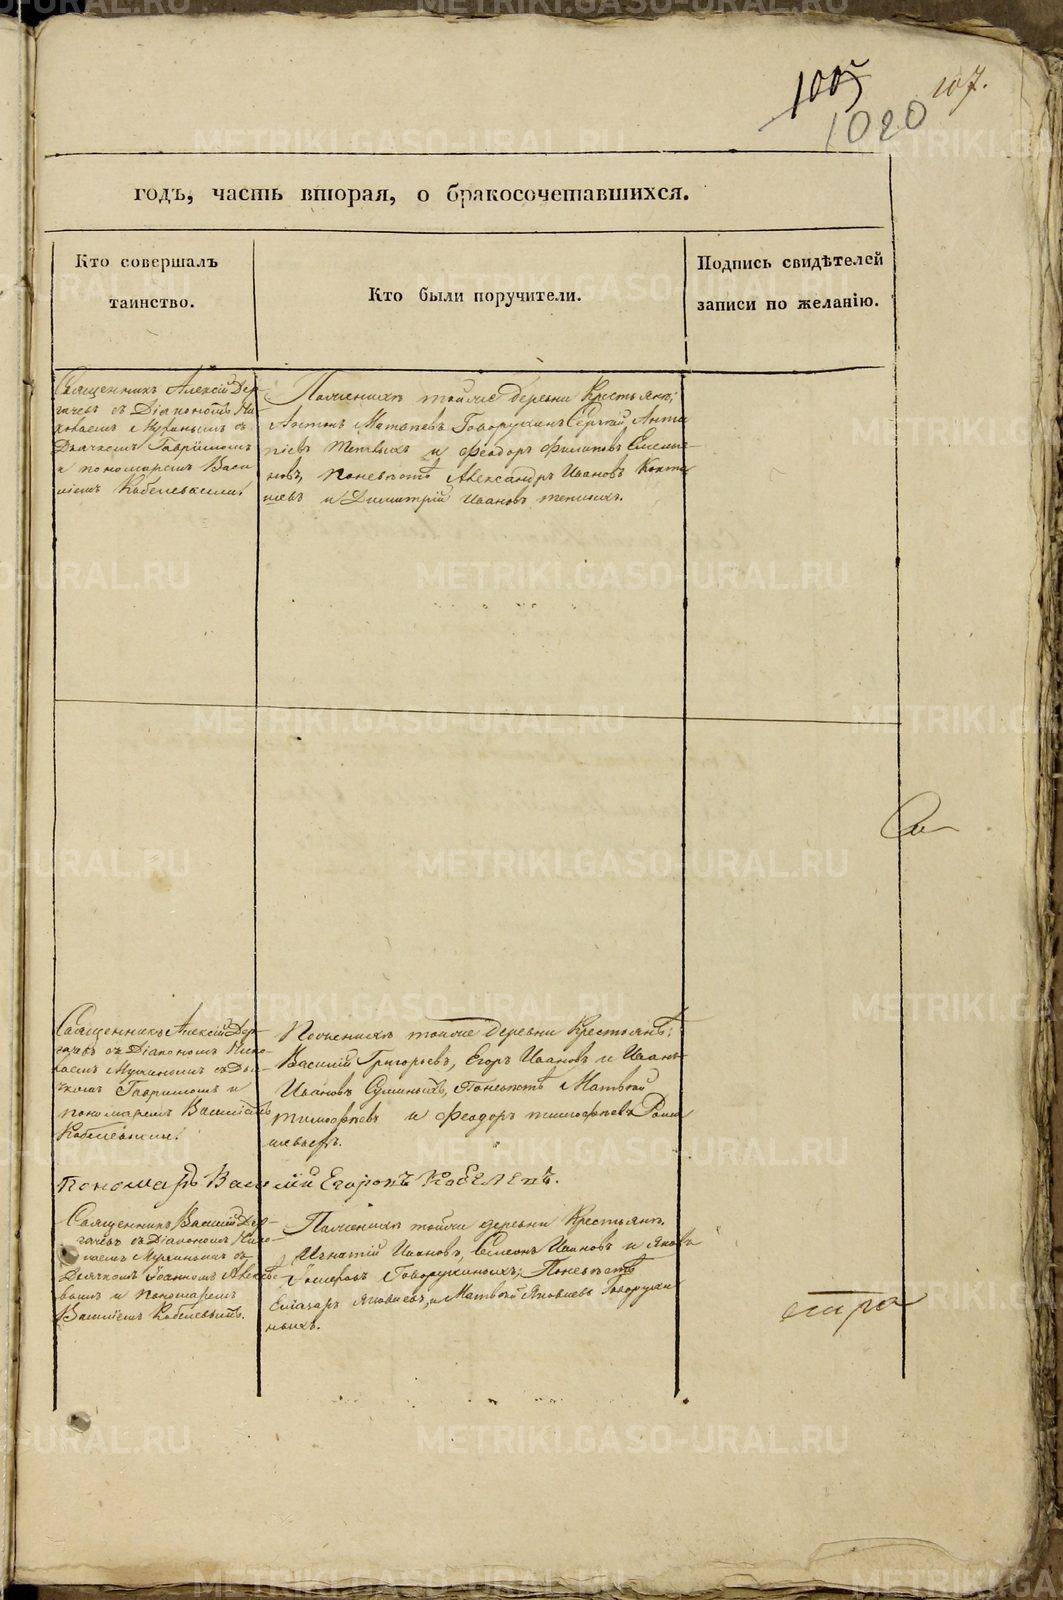 1005
107.
1020
годъ, часть вторая, о бракосочетавшихся.
Кто совершалъ
таинство.
Кто были поручители.
Подпись свидѣтелей
записи по желанію.
Священникъ Алексій Дер-
гачевъ съ Діакономъ Ни-
колаемъ съ
Дьячкомъ Гавриломъ
и пономаремъ Васи-
ліемъ Кобелевыми.
По женихѣ тойже деревни Крестьяне;
Антонъ Матвѣевъ Говорухинъ Сергѣй Анти
піевъ и Феодоръ Филиповъ Емелья-
новъ, По невѣстѣ Александръ Ивановъ
и Димитрій Ивановъ
Священникъ Алексій Дер-
гачевъ съ Діакономъ Нико-
лаемъ съ Дья-
чкомъ Гавриломъ и
пономаремъ Василіемъ
Кобелевыми.
По женихѣ тойже деревни Крестьянѣ;
Василій Григорьевъ, Егоръ Ивановъ и Иванъ
Ивановъ По невѣстѣ Матвѣй
Тимофѣевъ и Феодоръ Тимофѣевъ
Пономарь Василій Егоровъ Кобелевъ.
Священникъ Василій Дер-
гачевъ съ Діакономъ Нико-
лаемъ съ
Дьячкомъ Іоанномъ Алексѣе-
вымъ и Пономаремъ
Василіемъ Кобелевымъ.
По женихѣ тойже деревни Крестьяне.
Игнатій Ивановъ, Семенъ Ивановъ и Яковъ
Говорухиныхъ; По невѣстѣ
Елиазаръ Яковлевъ, и Матвѣй Яковлевъ Говорухи
ныхъ.